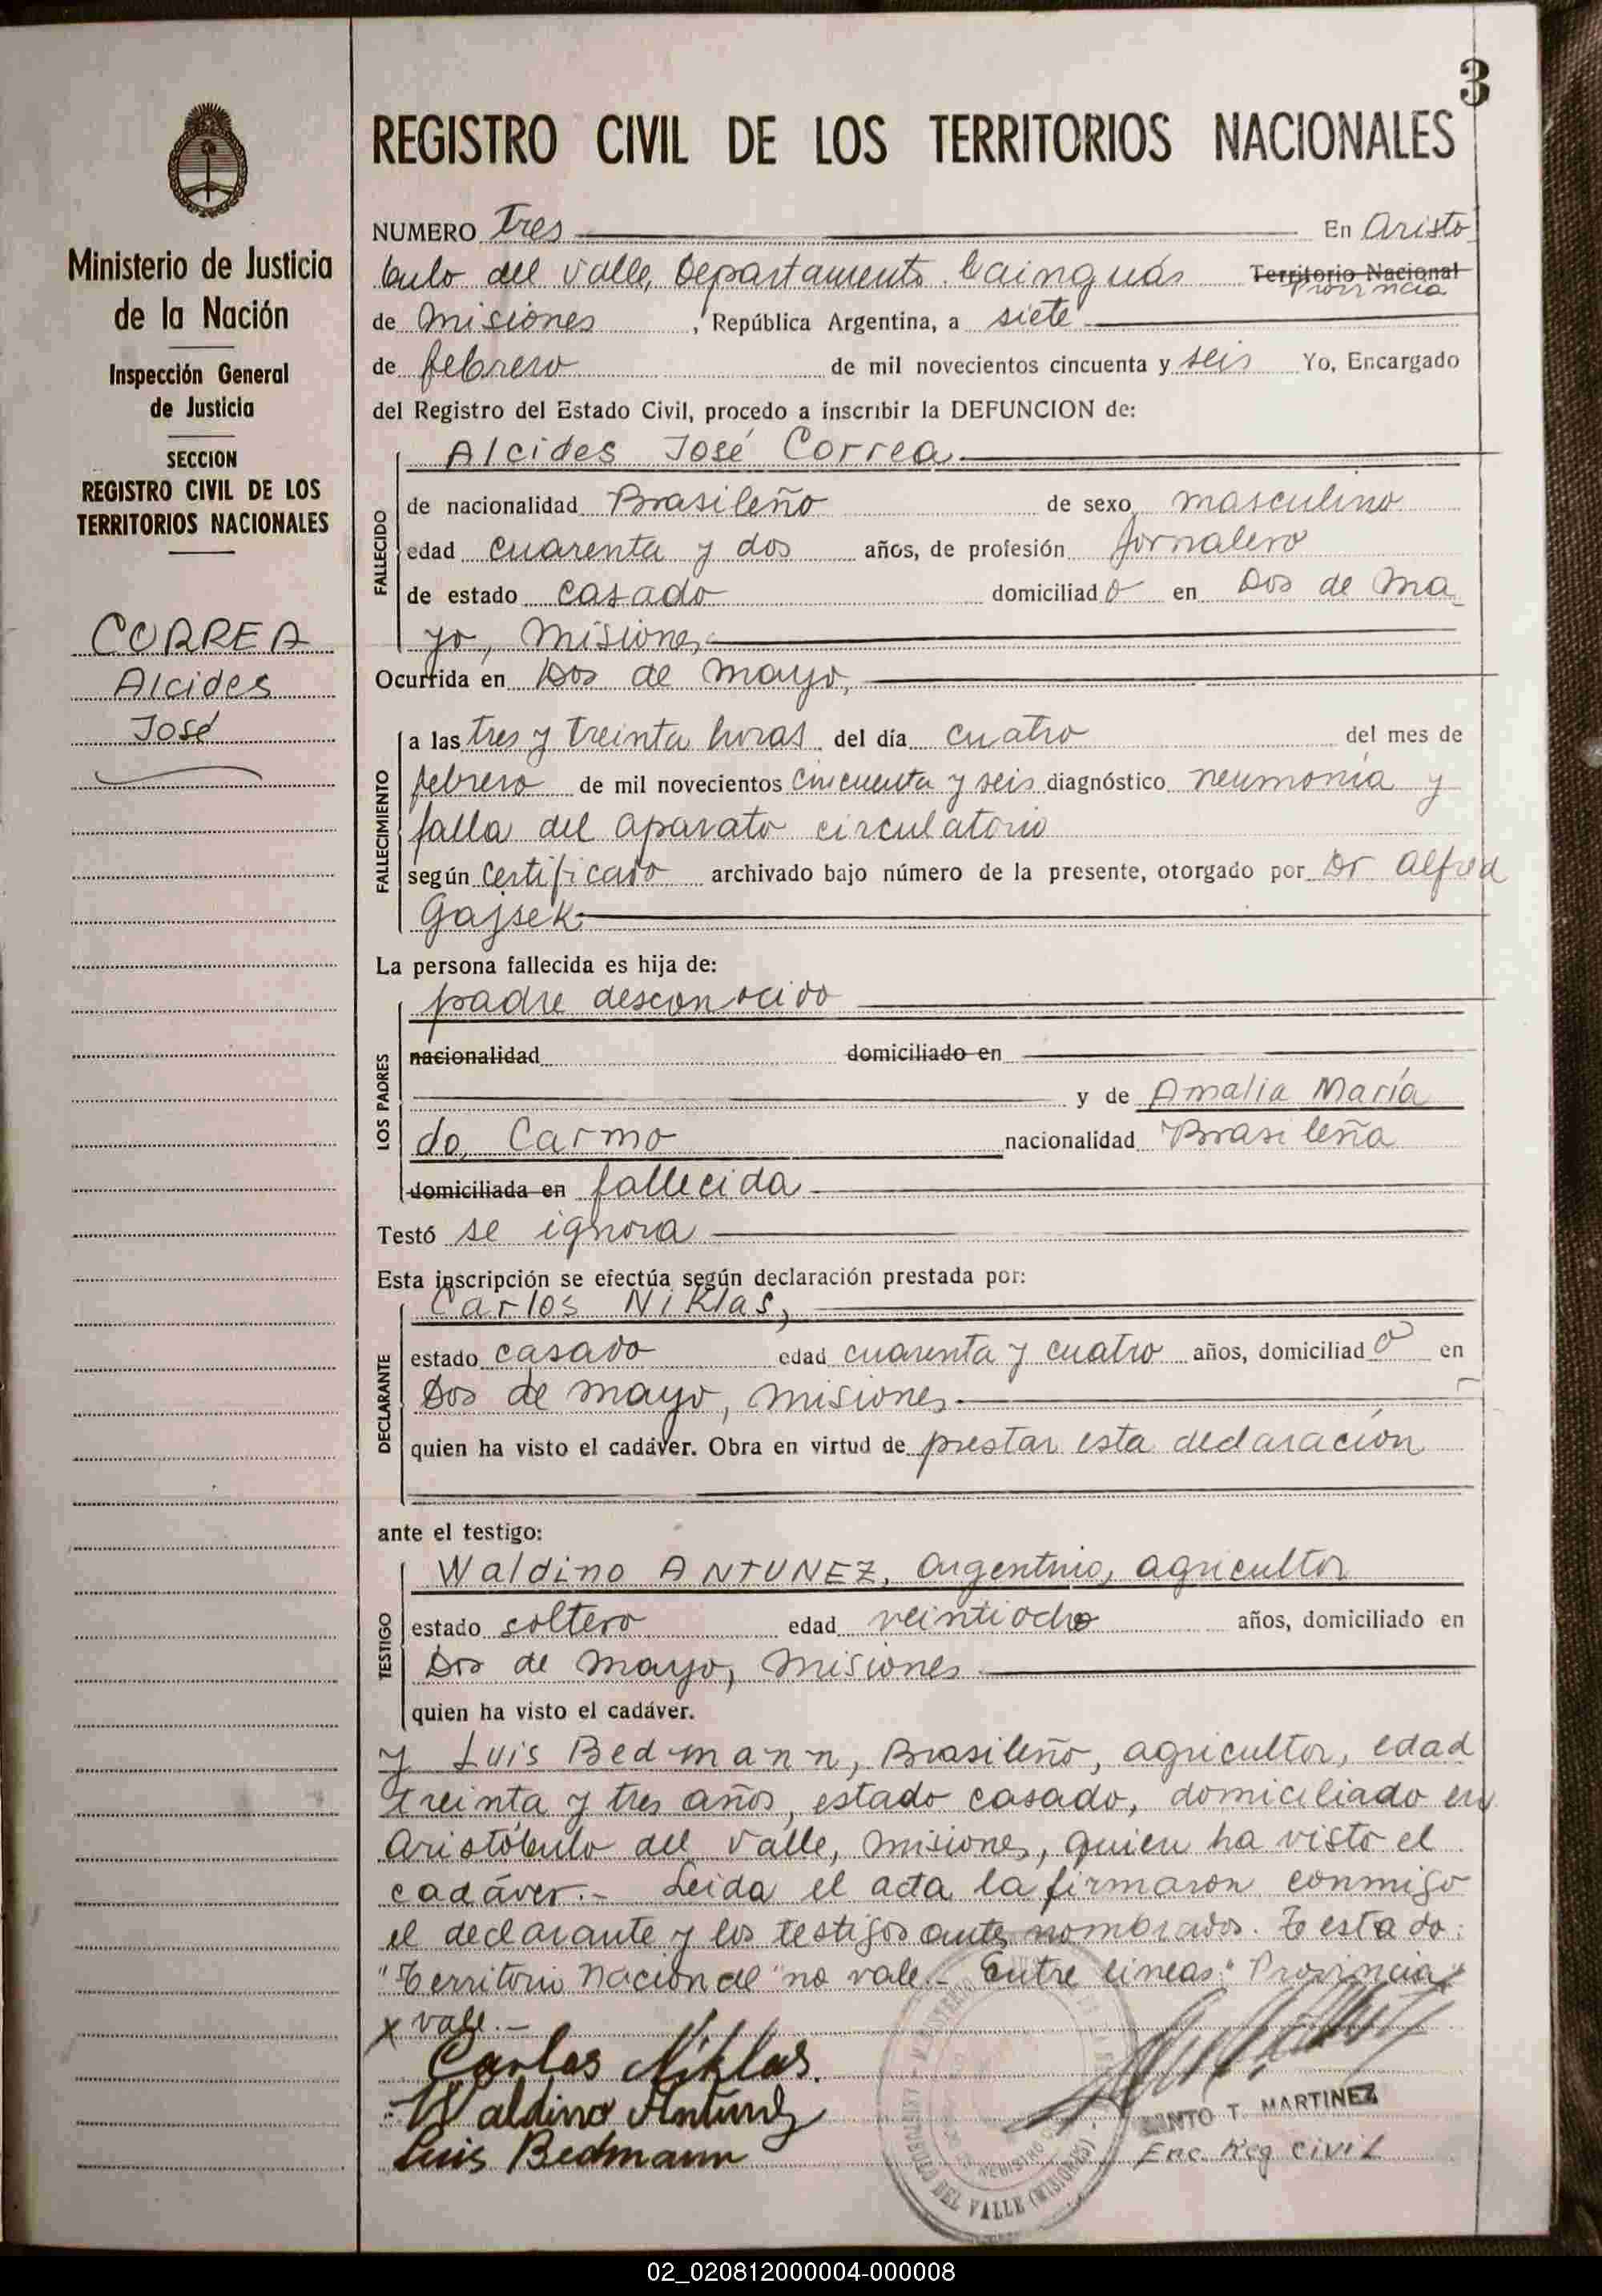 3
REGISTRO CIVIL DE LOS TERRITORIOS NACIONALES
Ministerio de Justicia
de la Nación
Inspección General
de Justicia
SECCION
REGISTRO CIVIL DE LOS
TERRITORIOS NACIONALES
CORREA
Alcides
José
NUMERO Tres En Aristó
bulo del Valle, Departamento Cainguás Territorio Nacional
Provincia
de Misiones, República Argentina, a siete
de febrero de mil novecientos cincuenta y seis Yo, Encargado
del Registro del Estado Civil, procedo a inscribir la DEFUNCION de:
FALLECIDO
Alcides José Correa
de nacionalidad Brasileño de sexo masculino
edad cuarenta y dos años, de profesión jornalero
de estado casado domiciliado en Dos de Ma
yo, Misiones
Ocurrida en Dos de Mayo,
FALLECIMIENTO
a las tres y treinta horas del día cuatro del mes de
febrero de mil novecientos cincuenta y seis diagnóstico neumonía y
falla del aparato circulatorio
según certificado archivado bajo número de la presente, otorgado por Dr Alfred
Gajsek
La persona fallecida es hija de:
LOS PADRES
padre desconocido
nacionalidad domiciliado en
y de Amalia María
do Carmo nacionalidad Brasileña
domiciliada en fallecida
Testó se ignora
Esta inscripción se efectúa según declaración prestada por:
DECLARANTE
Carlos Niklas,
estado casado edad cuarenta y cuatro años, domiciliado en
Dos de Mayo, Misiones
quien ha visto el cadáver. Obra en virtud de prestar esta declaración
ante el testigo:
TESTIGO
Waldino ANTUNEZ, argentino, agricultor
estado soltero edad veintiocho años, domiciliado en
Dos de Mayo, Misiones
quien ha visto el cadáver.
y Luis Bedmann, Brasileño, agricultor, edad
treinta y tres años, estado casado, domiciliado en
Aristóbulo del Valle, Misiones, quien ha visto el
cadáver.- Leida el acta la firmaron conmigo
el declarante y los testigos antes nombrados. Testado:
"Territorio Nacional" no vale.- Entre lineas: "Provincia"
vale.-
Carlos Niklas.
Waldino Antunez
Luis Bedmann
DEL VALLE (MISIONES)
REGISTRO
T. MARTINEZ
Enc. Reg Civil
02_020812000004-000008